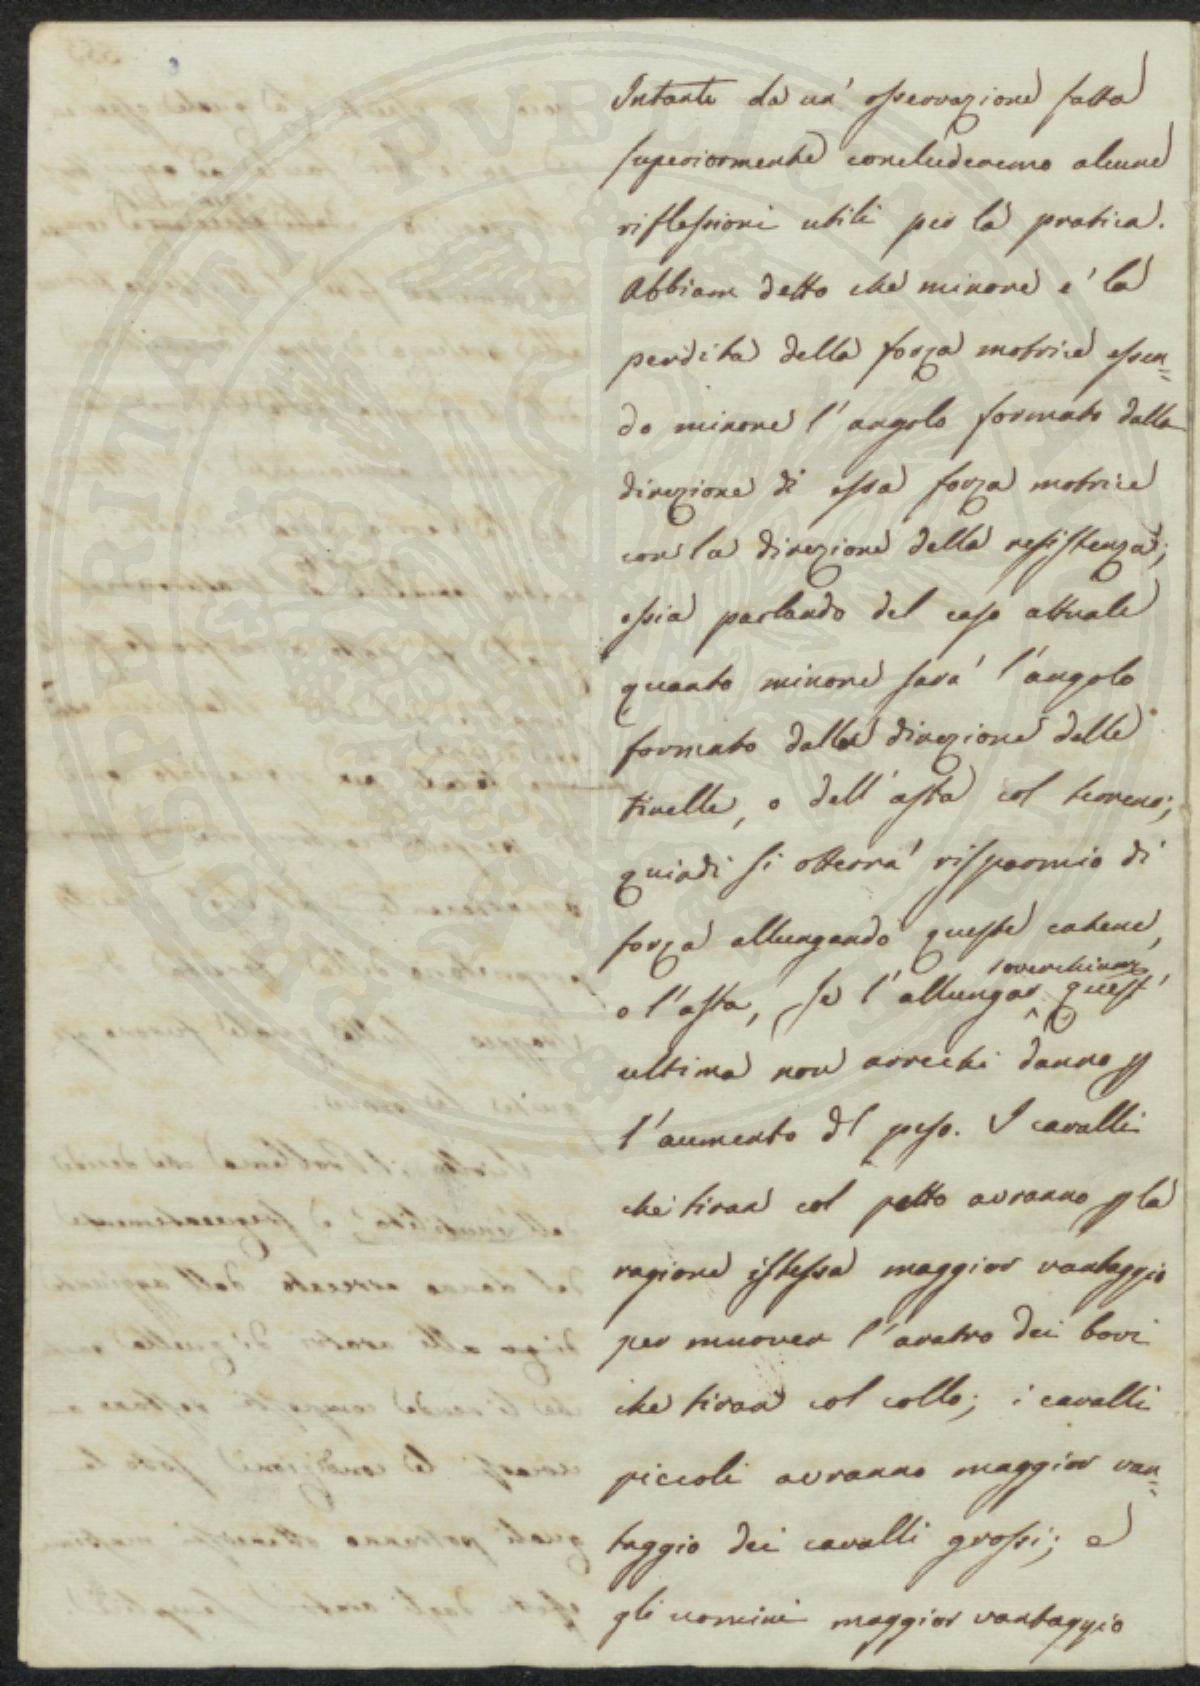 Intanto da un' osservazione fatta
superiormente concluderemo alcune
riflessioni utili per la pratica.
Abbiam detto che minore e' la
perdita della forza motrice essen=
do minore l' angolo formato dalla
direzione di essa forza motrice
con la direzione della resistenza;
ossia parlando del caso attuale
quanto minore sara' l'angolo
formato dalla direzione delle
tirelle, o dell' asta col terreno;
quindi si otterra' risparmio di
forza allungando queste catene,
soverchiam
o l'asta, se l' allungar quest'
ultima non arrechi danno p
l'aumento dl peso. I cavalli
che tiran col petto avranno p la
ragione istessa maggior vantaggio
per muover l' aratro dei bovi
che tiran col collo; i cavalli
piccoli avranno maggior van=
taggio dei cavalli grossi; e
gli uomini maggior vantaggio